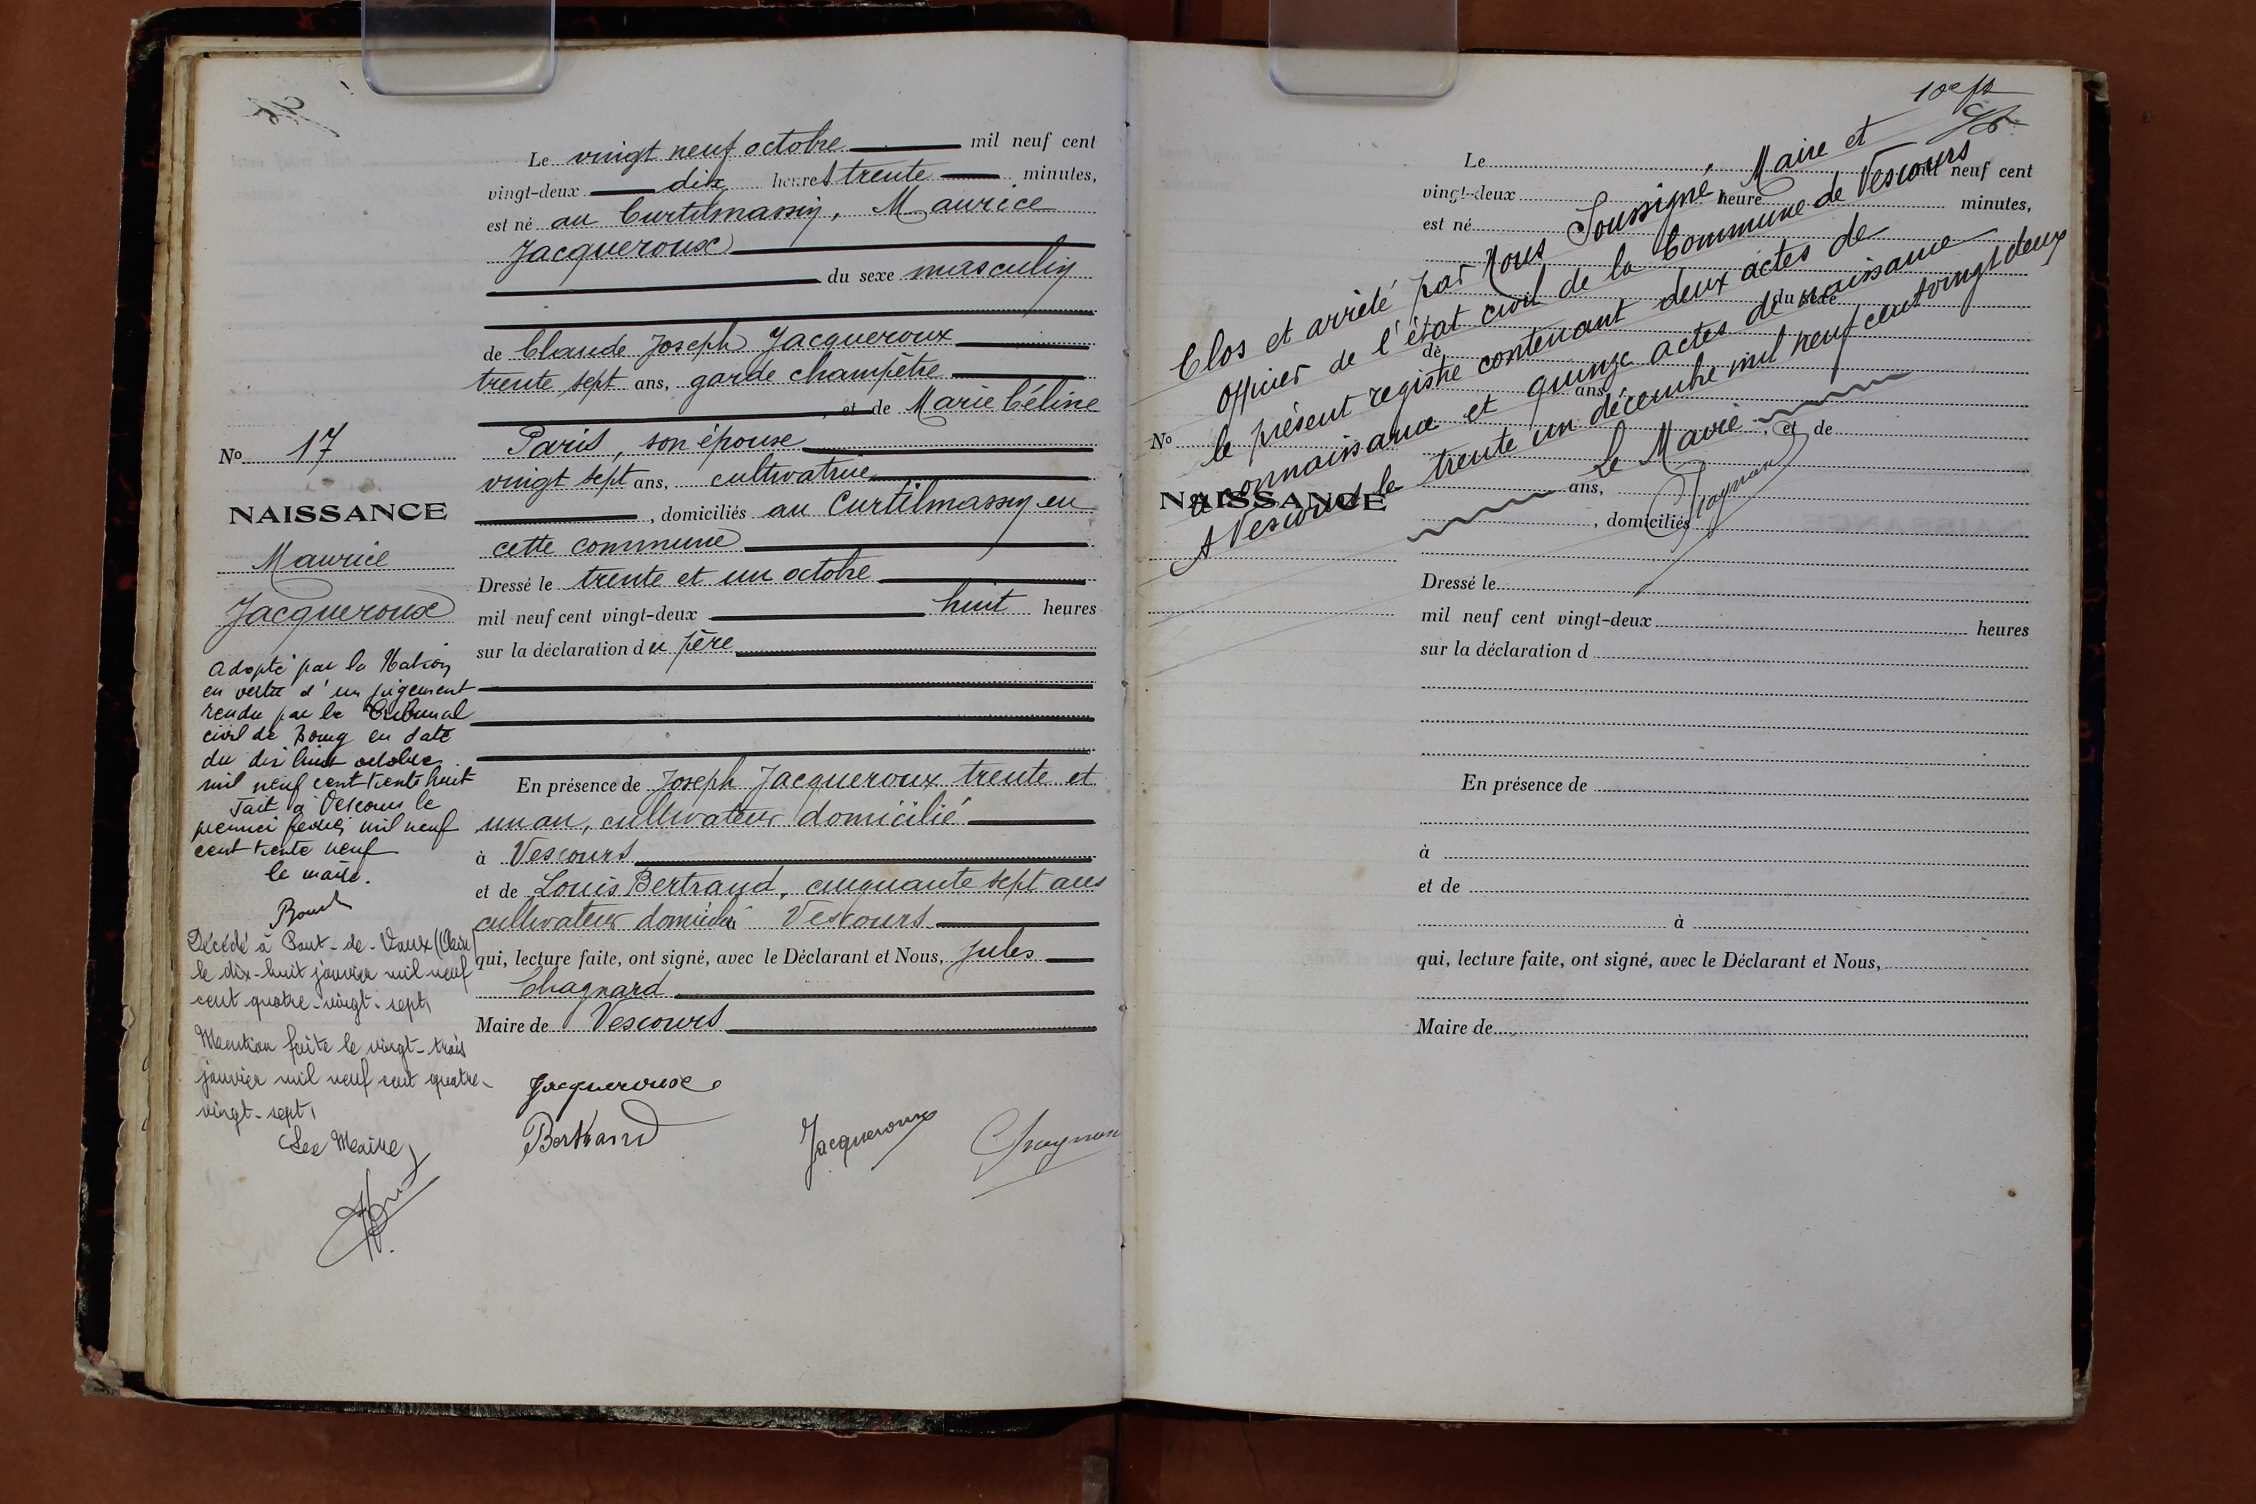 Le vingt neuf octobre mil neuf cent
vingt-deux dix heures trente minutes,
est né au Curtilmassin, Maurice
Jacqueroux
du sexe masculin
de Claude Joseph Jacqueroux
trente sept ans, garde champêtre
, et de Marie Céline
Paris, son épouse
vingt sept ans, cultivatrice
, domiciliés au Curtilmassin en
cette commune
Dressé le trente et un octobre
mil neuf cent vingt-deux huit heures
sur la déclaration du père
En présence de Joseph Jacqueroux trente et
un an, cultivateur domicilié
à Vescours
et de Louis Bertrand, cinquante sept ans
cultivateur domicilié à Vescours
qui, lecture faite, ont signé, avec le Déclarant et Nous, Jules
Chagnard
Maire de Vescours
Jacqueroux
Bertrand
Jacqueroux
No 17
NAISSANCE
Maurice
Jacqueroux
adopté par la Nation
en vertu d'un jugement
rendu par le Tribunal
civil de Bourg en date
du dix huit octobre
mil neuf cent trente huit
Fait à Vescours le
premier février mil neuf
cent trente neuf
le maire.
Décédé à Pont-de-Vaux (Ain)
le dix-huit janvier mil neuf
cent quatre-vingt-sept,
Mention faite le vingt-trois
janvier mil neuf cent quatre-
vingt-sept,
Le Maire,
Clos et arrêté par Nous Soussigné, Maire et
officier de l'état civil de la Commune de Vescours
le présent registre contenant deux actes de
reconnaissance et quinze actes de naissance
A Vescours le trente un décembre mil neuf cent vingt deux
Le Maire
Le mil neuf cent
vingt-deux heure minutes,
est né
du sexe
de
ans,
No , et de
NAISSANCE
ans,
, domiciliés
Dressé le
mil neuf cent vingt-deux heures
sur la déclaration d
En présence de
à
et de
à
qui, lecture faite, ont signé, avec le Déclarant et Nous,
Maire de